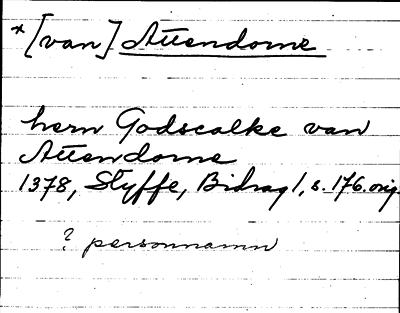 * [van] Attendorne
hern Godscalke van
Attendorne
1378, Styffe, Bidrag 1, s. 176. orig.
? personnamn